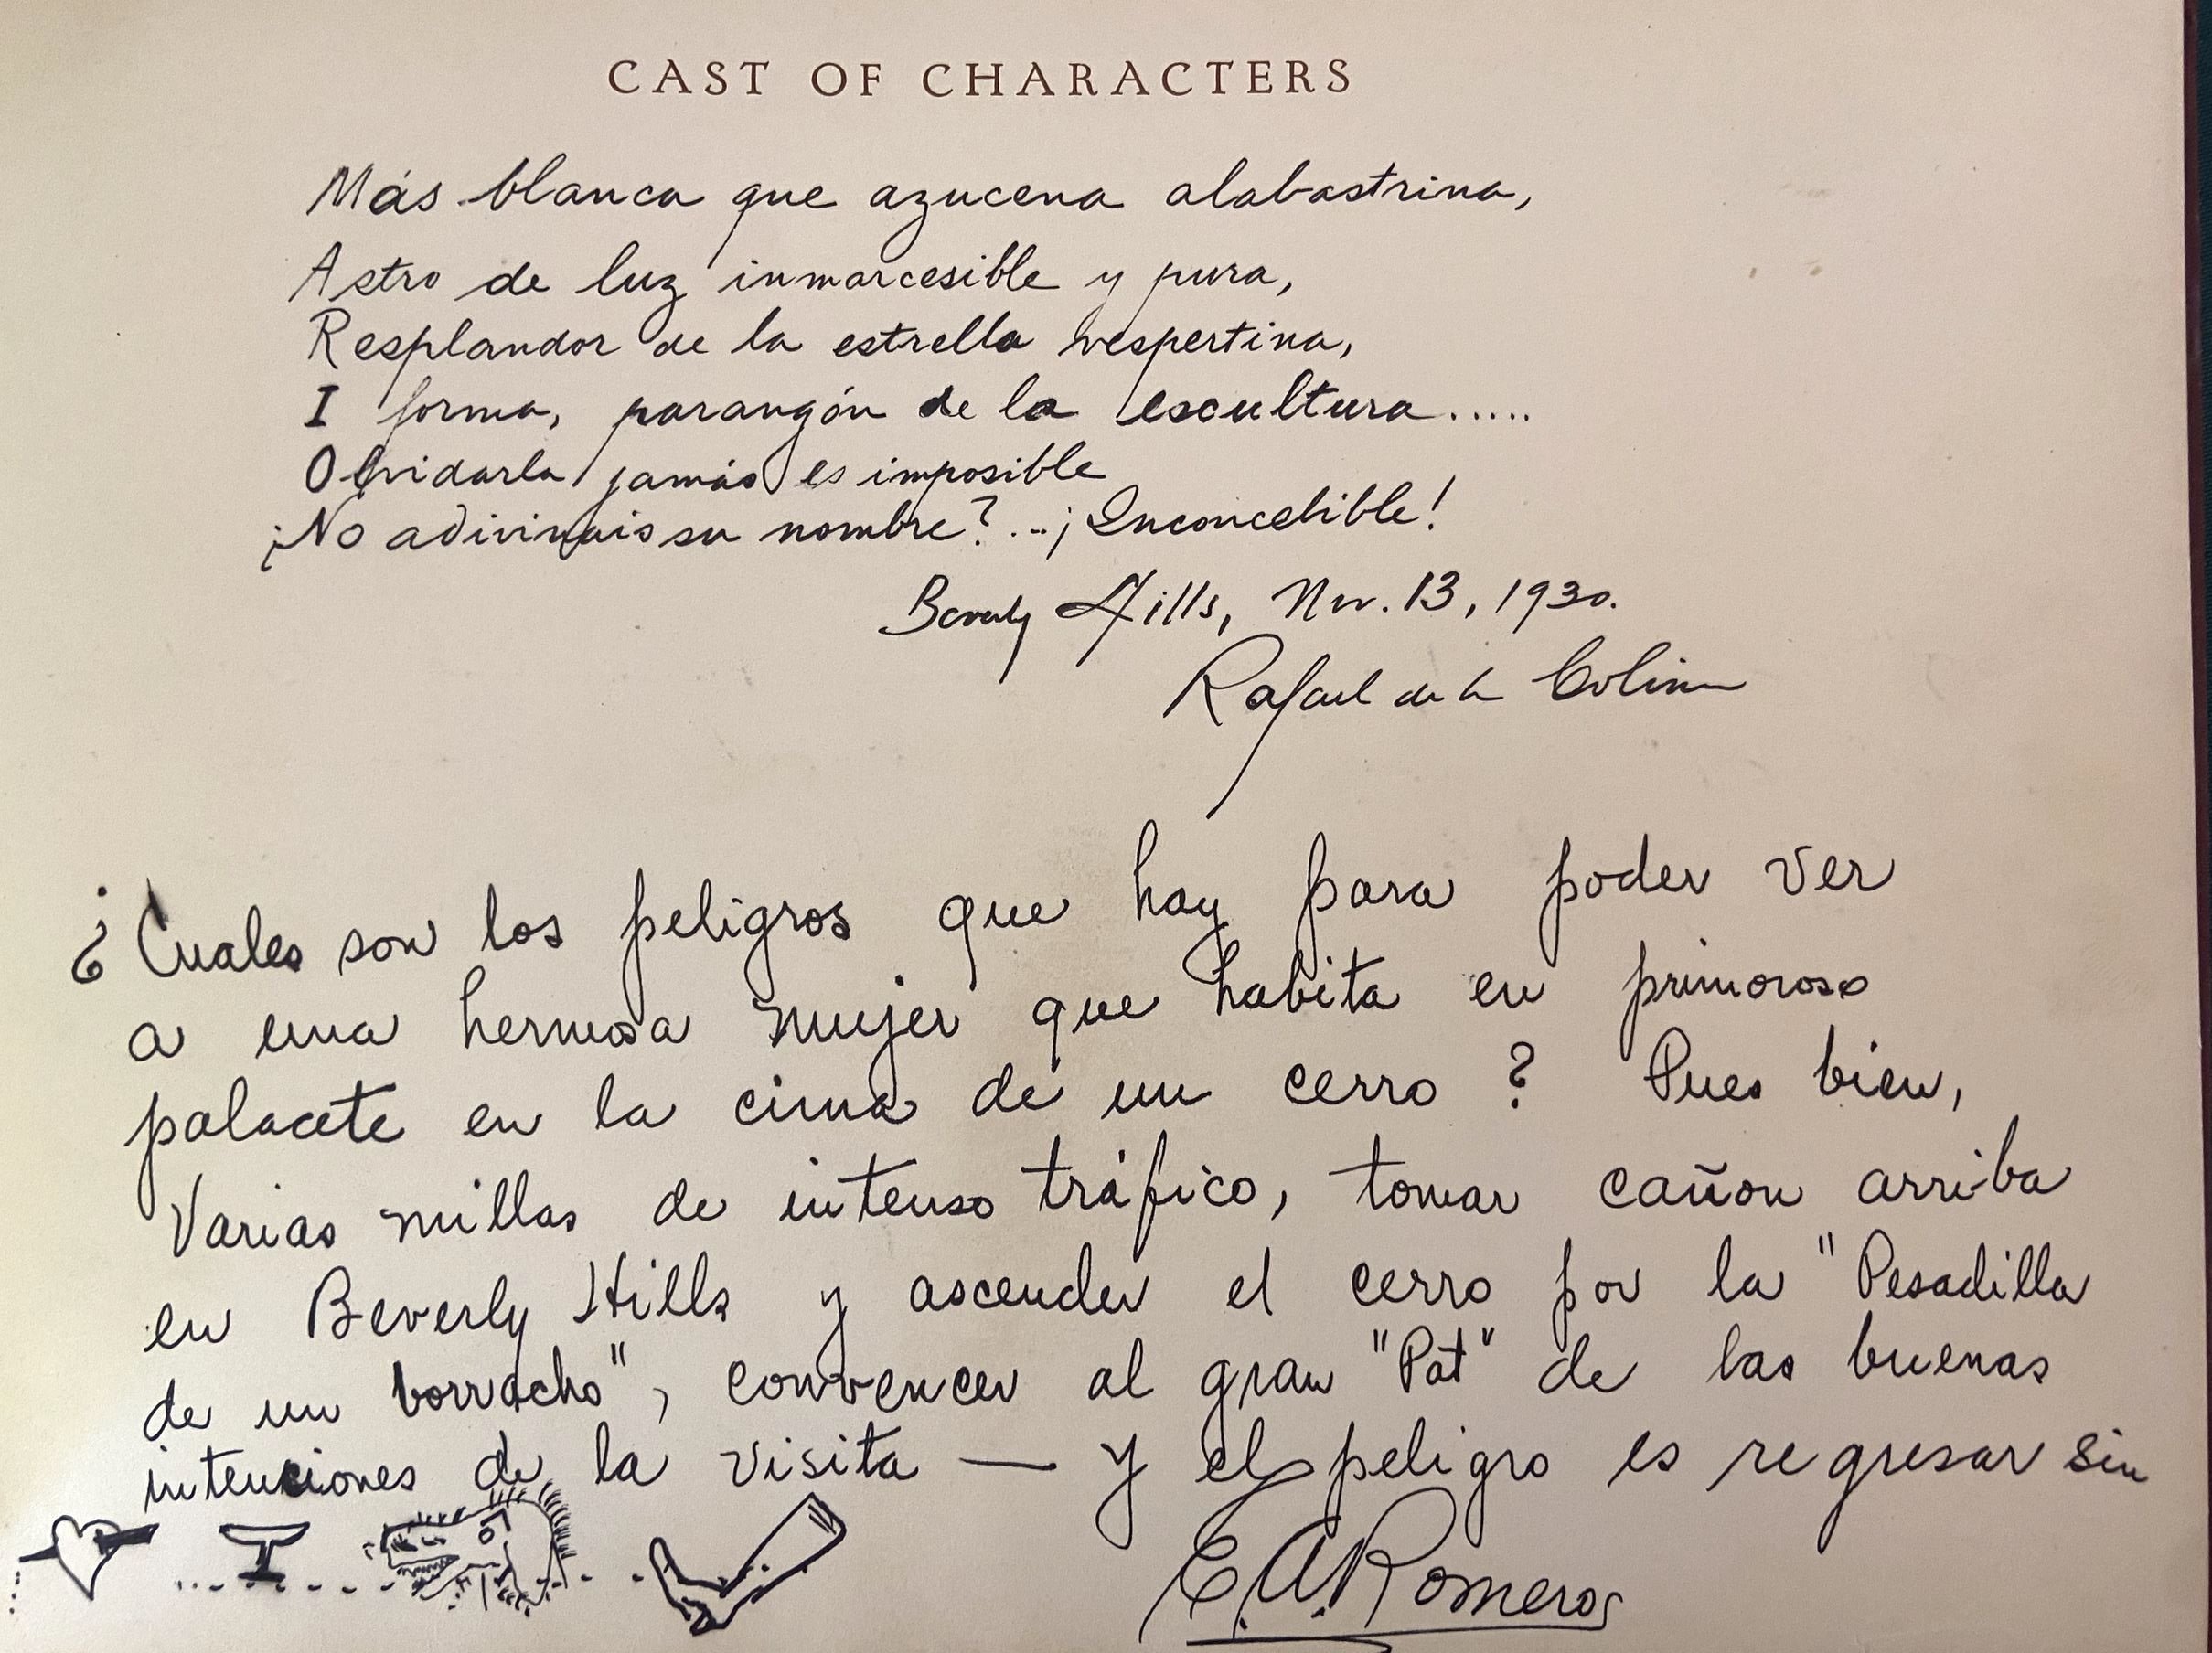 CAST OF CHARACTERS
Más blanca que azucena alabastrina,
Astro de luz inmarcesible y pura,
Resplandor de la estrella vespertina,
I forma, parangón de la escultura.....
Olvidarla jamás es imposible
¡No adivinais su nombre?...¡Inconcebible!
Beverly Hills, Nov. 13, 1930.
Rafael de la Colina
¿Cuales son los peligros que hay para poder ver
a una hermosa mujer que habita en primoroso
palacete en la cima de un cerro? Pues bien,
Varias millas de intenso tráfico, tomar cañon arriba
en Beverly Hills y ascender el cerro por la "Pesadilla
de un borracho", convencer al gran "Pat" de las buenas
intenciones de la visita — y el peligro es regresar sin
E.A. Romeros